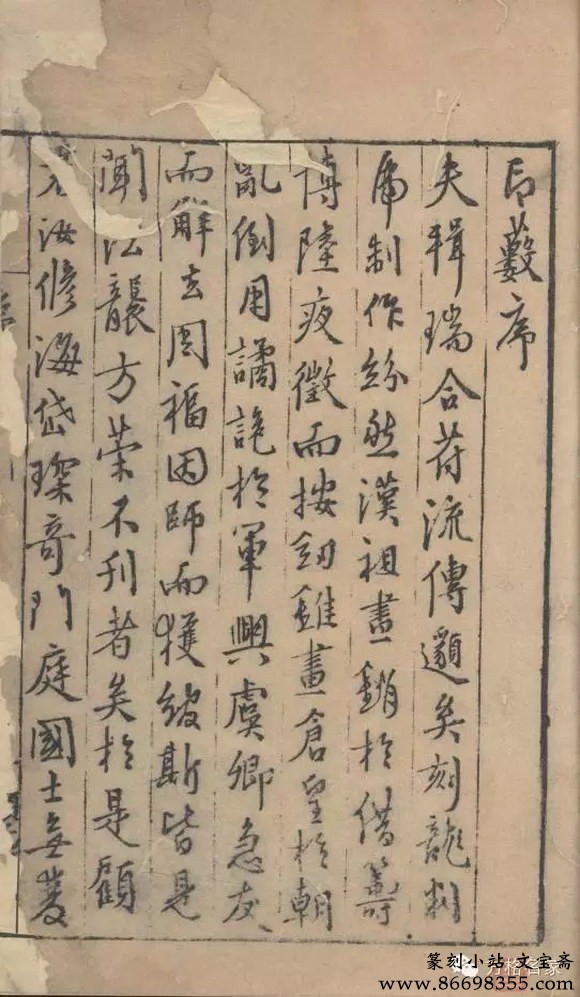 印藪序
夫輯瑞合符流傳邈矣刻龍刊
虎制作紛然漢祖畫銷於借箸
博陸疲徵而按劍雖畫倉皇於朝
亂倒用譎詭於軍興虞卿急友
而解去周福因師而獲綬斯皆是
聞法襲方策不刊者矣於是顧
君汝修海岱琛奇門庭國士無菱
方格名家
篆刻小站 文宝斋
www.86698355.com